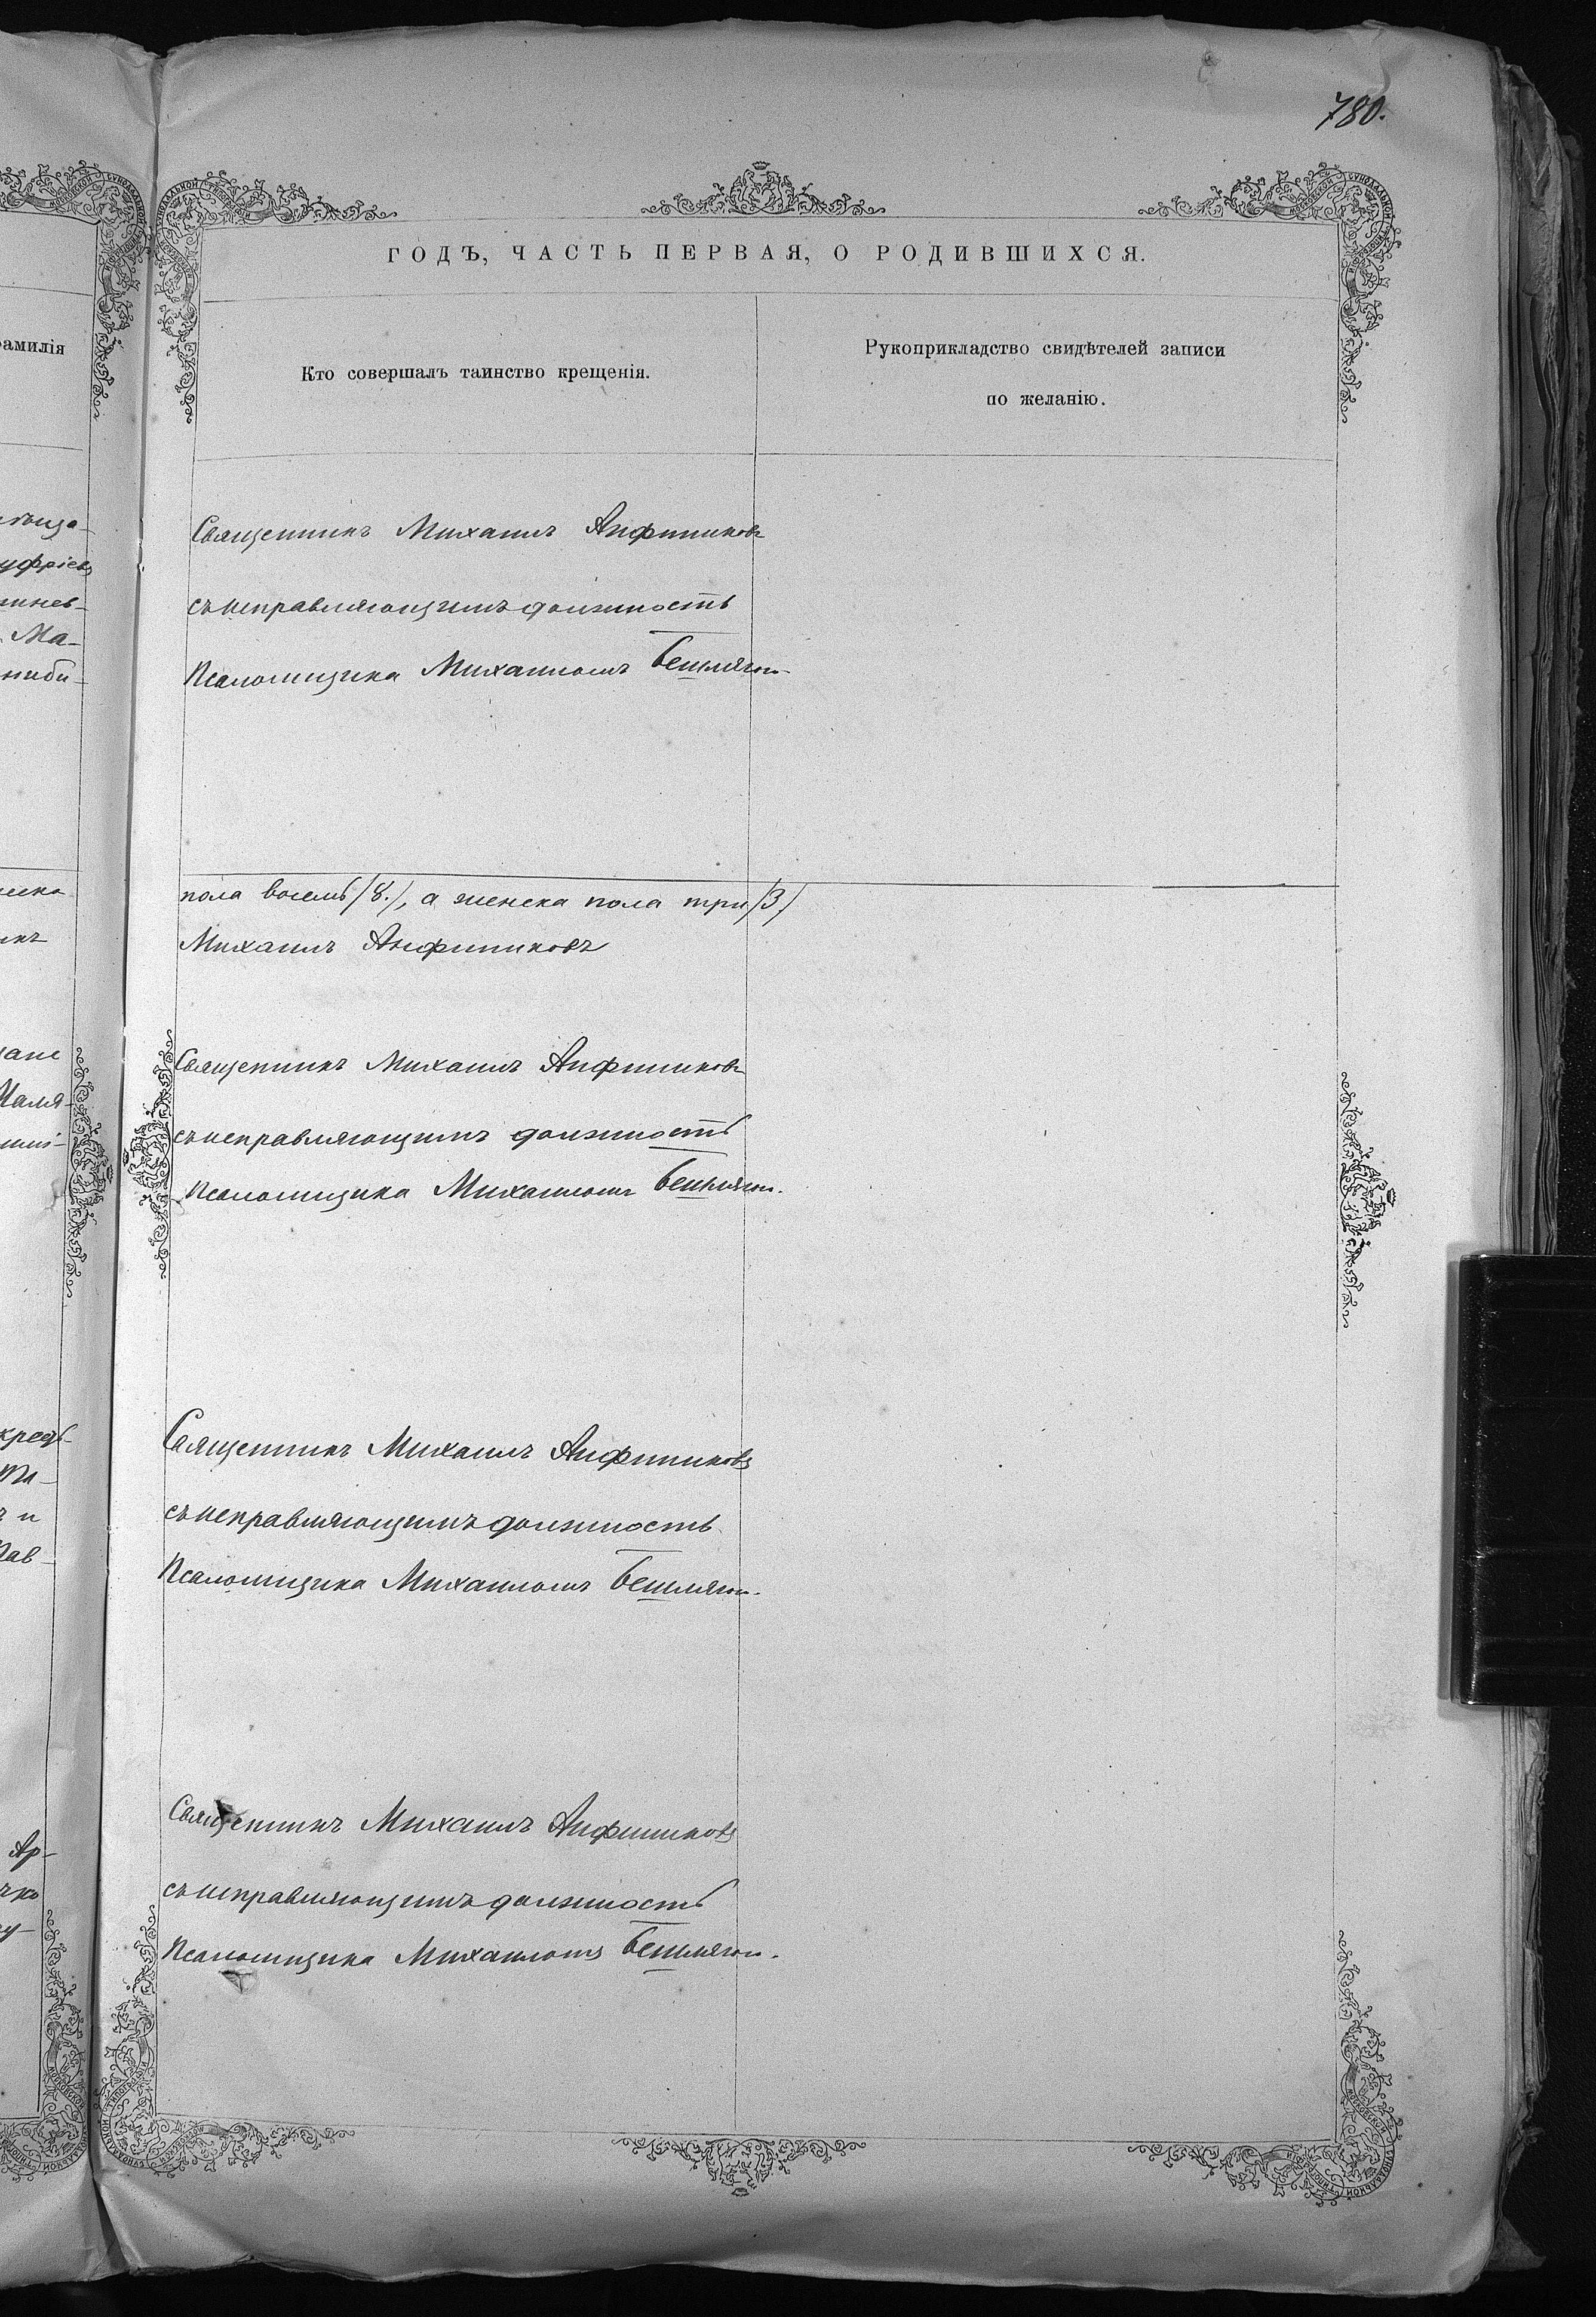 780.
ГОДЪ, ЧАСТЬ ПЕРВАЯ, О РОДИВШИХСЯ.
амилія
Кто совершалъ таинство крещенія.
Рукоприкладство свидѣтелей записи
по желанію.
Священникъ Михаилъ Анфиников
съ исправляющимъ должность
Псаломщика Михаиломъ
пола восемь /8./, а женска пола три /3/
Михаилъ Анфиниковъ
Священникъ Михаилъ Анфиников
съ исправляющимъ должность
псаломщика Михаиломъ
Священникъ Михаилъ Анфиниковъ
съ исправляющимъ должность
Псаломщика Михаиломъ
Священникъ Михаилъ Анфиниковъ
съ исправляющимъ должность
Псаломщика Михаиломъ